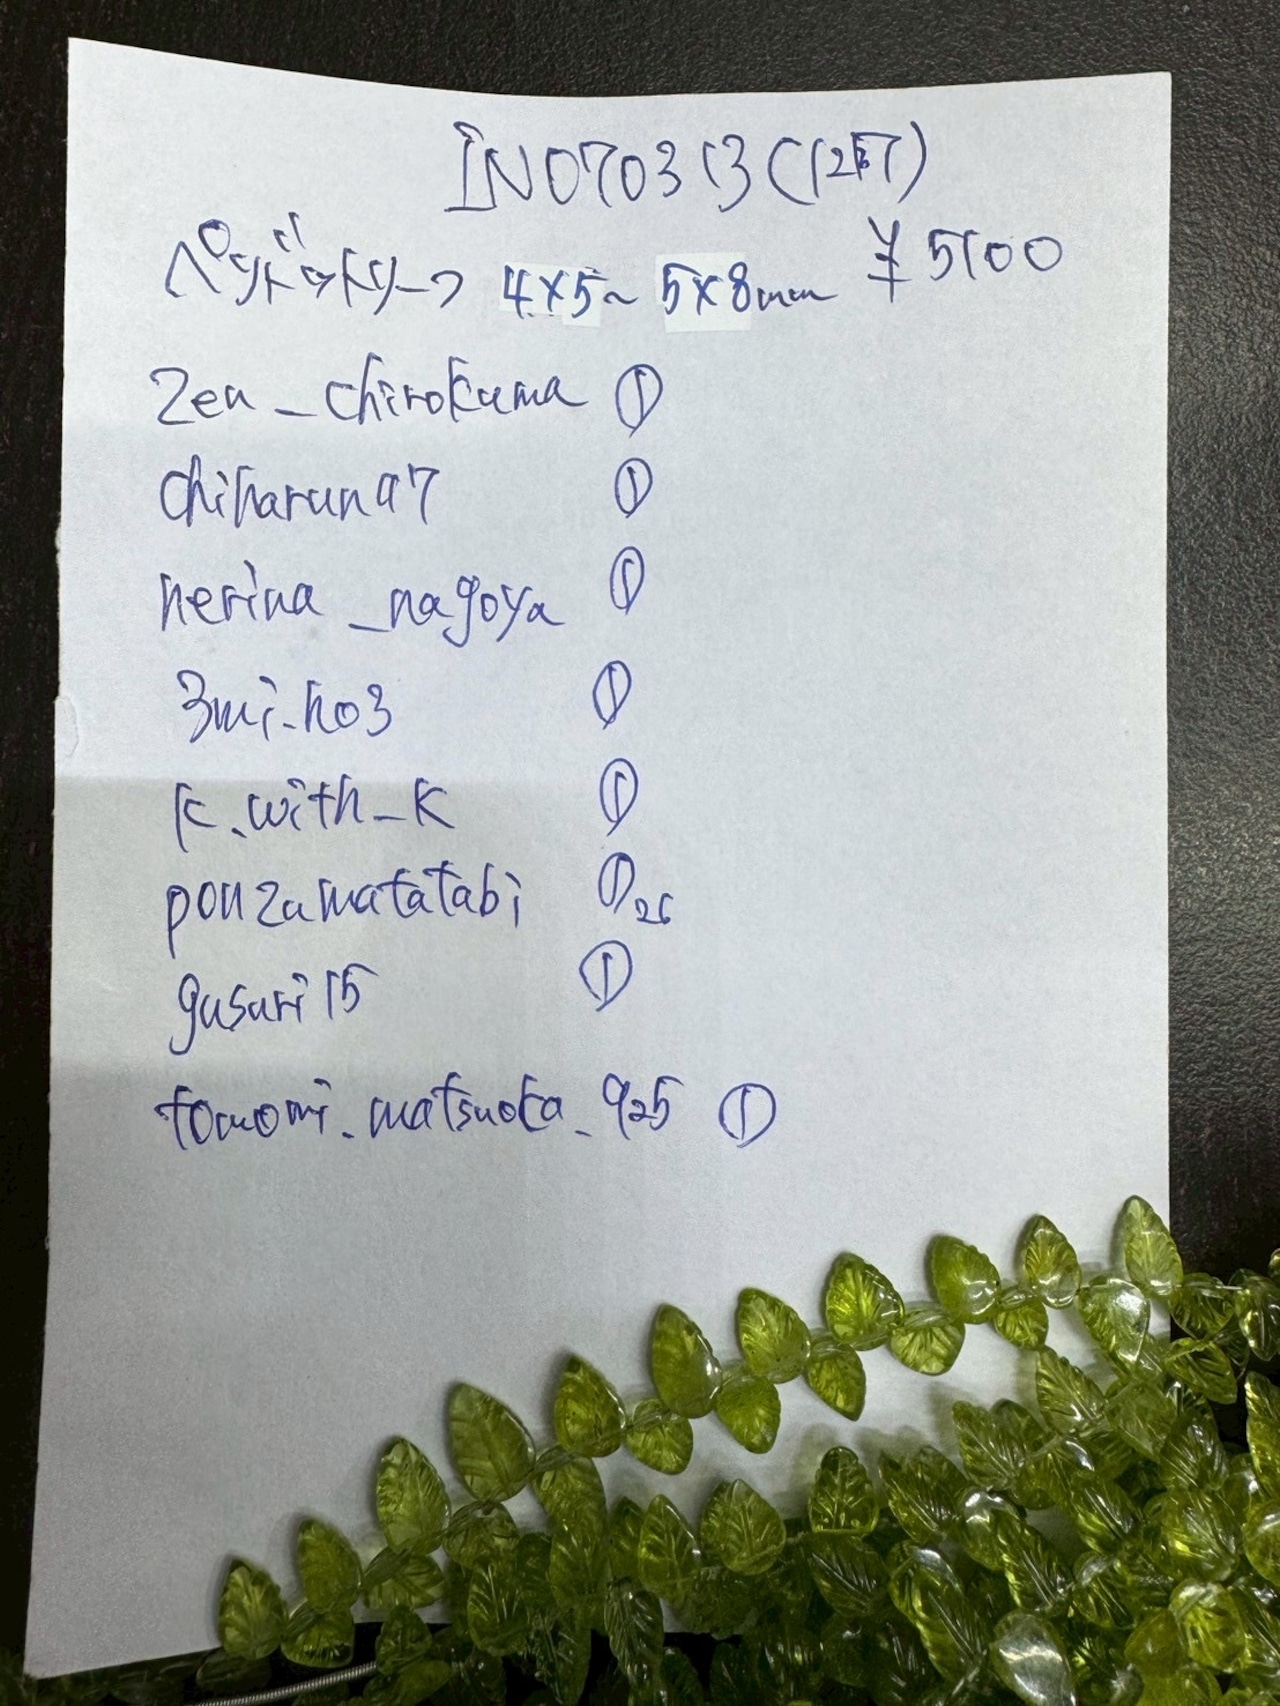 IN070313(12ﾓﾃ)
ペリドットリーフ 4×5~5×8mm ¥5100
zen_chirokuma ①
chiharuna7 ①
nerina_nagoya ①
3mi_ho3 ①
k.with_k ①
ponzamatatabi ① 26
gusuri15 ①
tomomi_matsuoka_925 ①